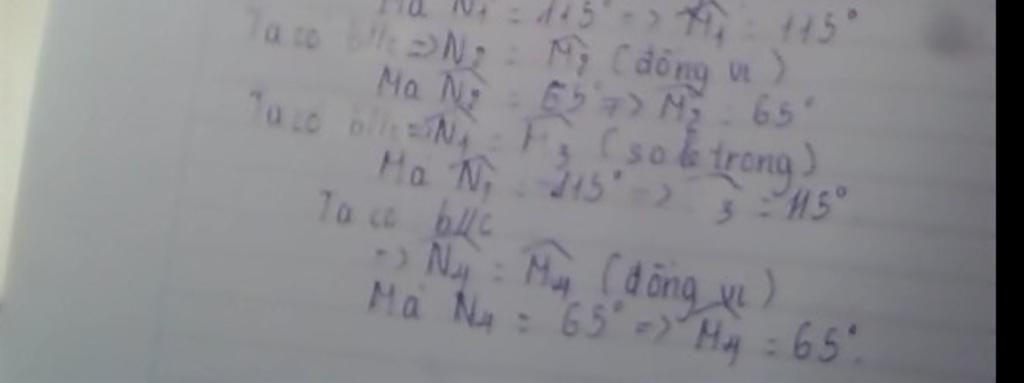 Mà N̂₁ = 115° => M̂₁ = 115°
Ta có b//c => N̂₂ = M̂₂ (đồng vị)
Mà N̂₂ = 65° => M̂₂ = 65°
Ta có b//c => N̂₁ = M̂₃ (so le trong)
Mà N̂₁ = 115° => ₃ = 115°
Ta có b//c
=> N̂₄ = M̂₄ (đồng vị)
Mà N₄ = 65° => M̂₄ = 65°.